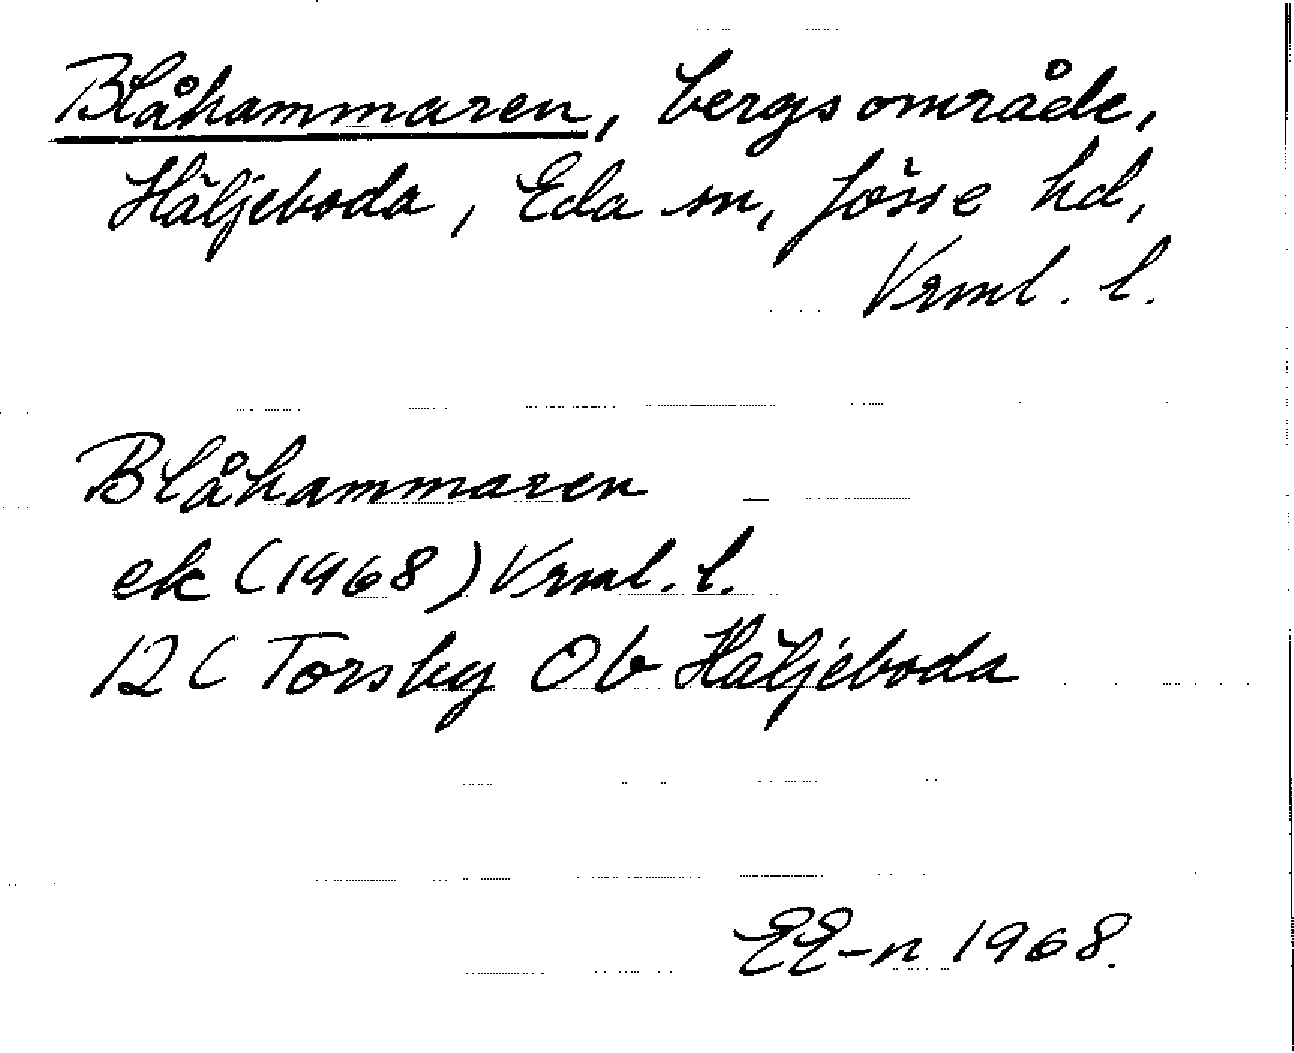 Blåhammaren, bergsområde,
Häljeboda, Eda sn, Jösse hd,
Vrml. l.
Blåhammaren
ek (1968) Vrml. l.
12 C Torsby Ob Häljeboda
EE-n 1968.